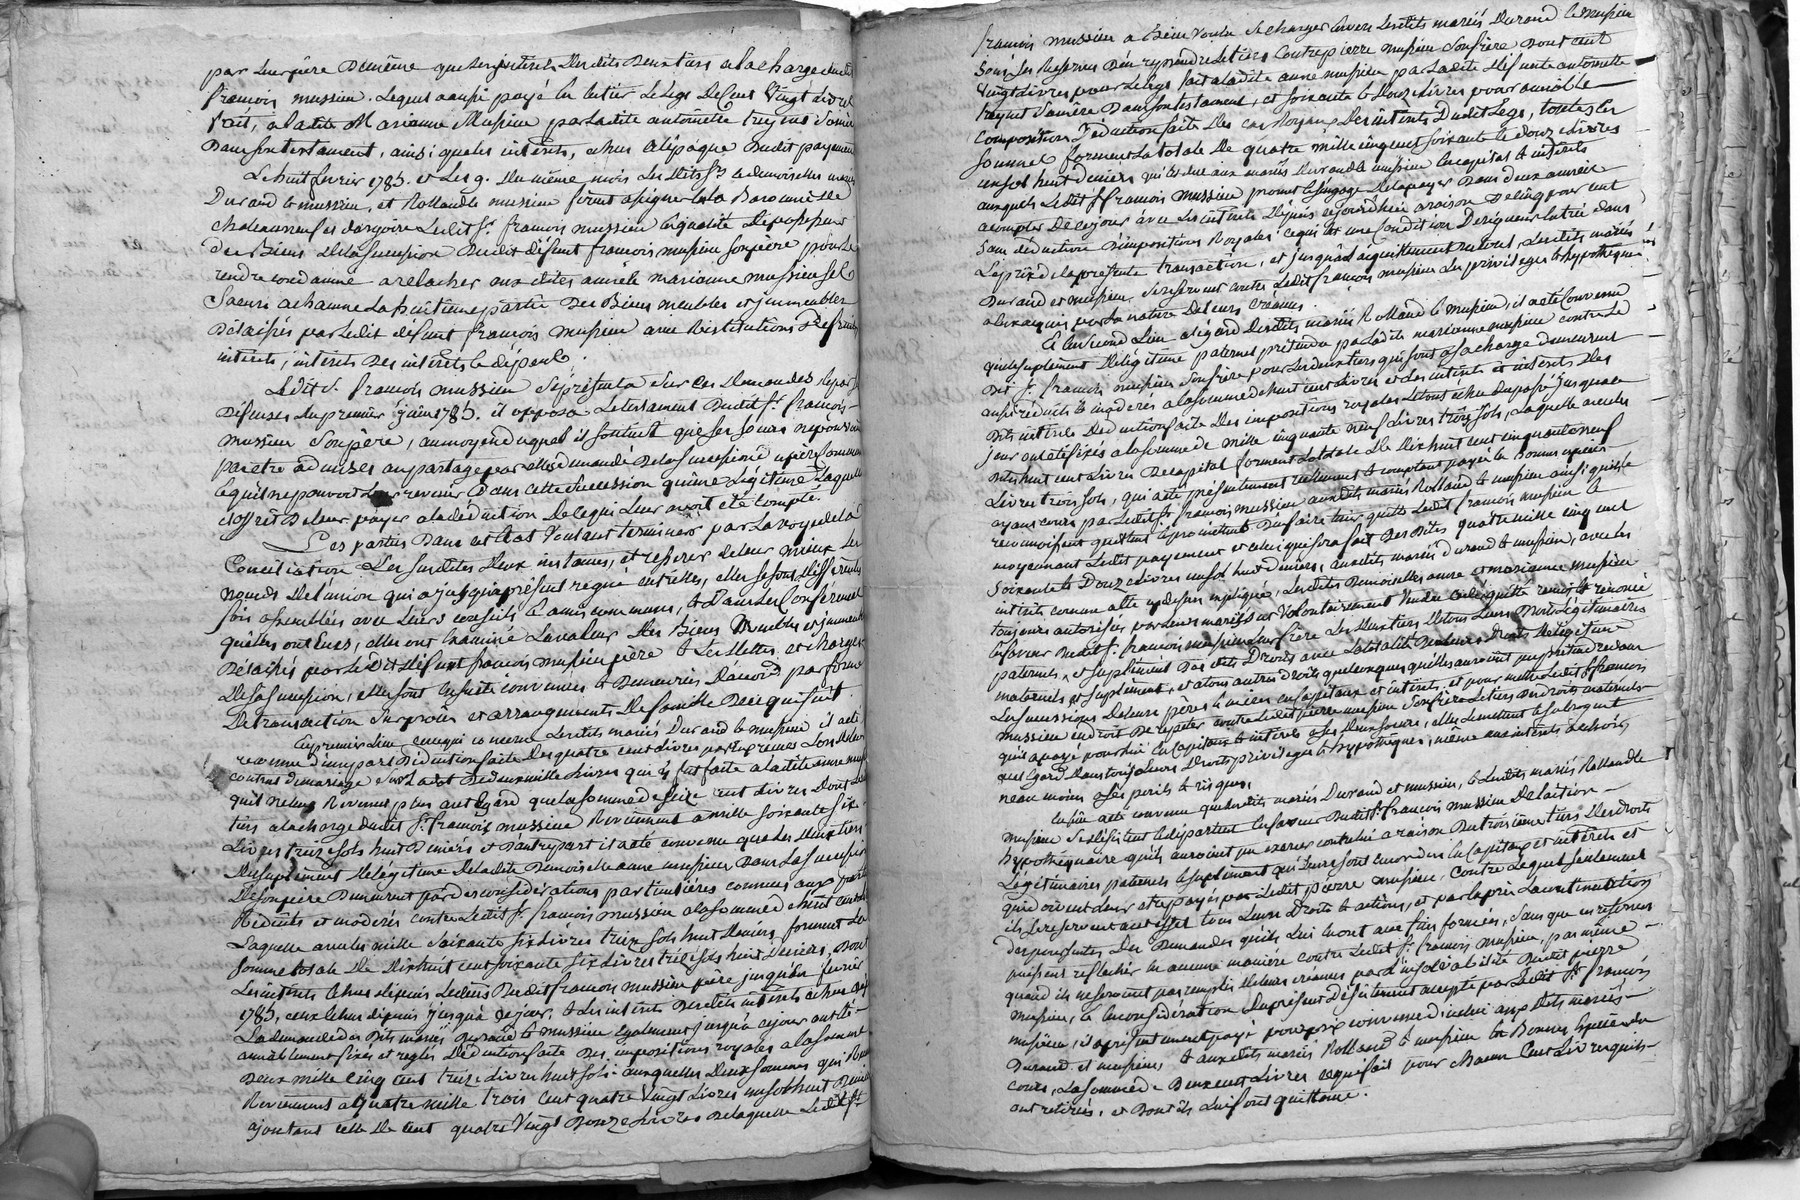 par leur père de même que les intérêts desdits deux tiers à la charge dudit
françois mussieu. lequel a aussi payé en entier le legs de Cent vingt livres
fait, a ladite Marianne Mussieu par ladite antoinette
dans son testament, ainsi que les intérêts, echus à l'époque dudit payement
Le huit fevrier 1785. et le 9. du même mois lesdits srs et demoiselles mariés
Durand et mussieu, et Rolland et mussieu firent assigner en la Baronnie de
chateauneuf et dargoire ledit sr. françois mussieu en qualité de possesseur
des Biens de la succession dudit défunt françois mussieu son père pour se
rendre condamné a relacher aux dites anne et marianne mussieu ses
Soeurs a chacune la huitieme partie des Biens meubles et immeubles
délaissés par ledit défunt françois mussieu avec Restitutions de fruits,
intérêts, intérêts des intérêts et dépens.
Ledit sr. françois mussieu se présenta sur ces demandes
défenses du premier juin 1785. il opposa le testament dudit sr. françois
mussieu son père, au moyen duquel il soutint que ses soeurs ne pouvoient
pas être admises au partage par elles demandé de la succession du père commun
et qu'il ne pouvoit leur revenir dans cette succession qu'une Légitime laquelle
il offrit de leur payer a la déduction de ce qui leur avoit été compté.
Les parties dans cet état voulant terminer par la voye de la
Conciliation les susdites deux instances, et resserer de leur mieux les
noeuds de l'union qui a jusqu'à présent regné entr'elles, elles se sont différentes
fois assemblées avec leurs conseils et amis communs, et dans les conférences
qu'elles ont Eues, elles ont Examiné la valeur des Biens Meubles et immeubles
délaissés par ledit défunt françois mussieu père et les dettes et charges
de sa succession, elles sont ensuite convenues et demeurées d'accord par forme
de transaction sur procès et arrangements de famille de ce qui suit.
En premier lieu en ce qui concerne lesdits mariés Durand et mussieu il a été
reconnu d'une part déduction faite des quatre cent livres par Eux reçues lors de leur
contrat de mariage sur la dot de deux mille livres qui fut faite a ladite anne mussieu
qu'il ne leur Revenoit plus a cet Egard que la somme de seize cent livres dont les deux
tiers a la charge dudit sr. françois mussieu Reviennent a mille soixante six
Livres treize sols huit deniers et d'autre part il a été convenu que les deux tiers
du suplément de légitime de ladite Demoiselle anne mussieu dans la succession
de son père demeurent par des considérations particulières connues aux parties
Réduits et modérés contre ledit sr. françois mussieu a la somme de huit cent livres
Laquelle avec les mille soixante six livres treize sols huit deniers forment la
somme totale de dix huit cent soixante six livres treize sols huit deniers, dont
les intérêts échus depuis le décès dudit françois mussieu père jusqu'au fevrier
1785, ceux échus depuis jusqu'à ce jour, et les intérêts desdits intérêts echus depuis
La demande desdits mariés Durand et mussieu également jusqu'à ce jour ont été
amiablement fixés et réglés déduction faite des impositions royales a la somme
deux mille cinq cent treize livres huit sols: auxquelles deux sommes qui
Reviennent a quatre mille trois cent quatre vingt livres un sol huit deniers
ajoutant celle de cent quatre vingt douze livres de laquelle ledit sr.
françois mussieu a bien voulu se charger envers lesdits mariés Durand et mussieu
sous les Reserves d'en reprendre le tiers contre pierre mussieu son frère dont cent
vingt livres pour le legs fait a ladite anne mussieu par ladite défunte antoinette
dans son testament, et soixante et douze livres pour amiable
composition déduction faite des cas Royaux des intérêts dudit legs, toutes les
sommes forment la totale de quatre mille cinq cent soixante et douze livres
un sol huit deniers qui est due aux mariés Durand et mussieu en capital et intérêts
auxquels ledit sr. françois mussieu promet et s'engage de la payer dans deux années
a compter de ce jour avec les intérêts depuis ce jourd'hui a raison de cinq pour cent
sans déduction d'impositions Royales ce qui est une condition de rigueur Entrée dans
Le prix de la présente transaction, et jusqu'à l'acquittement du tout, lesdits mariés
Durand et mussieu se reservent contre ledit françois mussieu les privileges et hypotheques
a eux acquis par la nature de leurs créances.
Et en second lieu a l'égard desdits mariés Rolland et mussieu, il a été convenu
que le suplément de légitime paternel prétendu par ladite marianne mussieu contre le
dit sr. françois mussieu son frère pour les deux tiers qui sont a sa charge demeurent
aussi réduits et modérés a la somme de huit cent livres et les intérêts et intérêts des
dits intérêts déduction faite des impositions royales le tout echus du passé jusqu'à ce
jour ont été fixés a la somme de mille cinquante neuf livres trois sols, laquelle avec les
dits huit cent livres de capital forment la totale de dix huit cent cinquante neuf
Livres trois sols, qui a été présentement réellement et comptant payée en bonnes espèces
ayant cours par ledit sr. françois mussieu auxdits mariés Rolland et mussieu ainsi qu'ils le
reconnoissent quittent et promettent d'en faire tenir quitte ledit françois mussieu et
moyennant ledit payement et celui qui sera fait desdites quatre mille cinq cent
soixante et douze livres un sol huit deniers, auxdits mariés Durand et mussieu, avec les
intérêts comme est ci dessus expliqué, lesdites Demoiselles anne et marianne mussieu
toujours autorisées par leurs maris ont volontairement vendu cédé quitté remis et renoncé
en faveur dudit sr. françois mussieu leur frère les deux tiers de tous leurs droits légitimaires
paternels, et suplément desdits Droits avec la totalité de leurs droits de légitime
maternels et suplement, et a tous autres droits quelconques qu'elles auroient pu prétendre dans
Les successions de leurs père et mère en capitaux et intérêts, et pour mettre ledit sr françois
mussieu en droit de répéter contre ledit pierre mussieu son frère le tiers des droits maternels
qu'il a payé pour lui en capitaux et intérêts a ses deux soeurs, elles le mettent et subrogent
quel Egard dans tous leurs Droits privileges et hypotheques, même aux intérêts a echoir,
neanmoins a ses perils et risques.
Enfin a été convenu que lesdits mariés Durand et mussieu, et lesdits mariés Rolland et
mussieu se désistent et départent en faveur dudit sr. françois mussieu de l'action
hypothéquaire qu'ils auroient pu exercer contre lui a raison du troisième tiers des droits
Légitimaires paternels et suplement qui leur sont encore dus en capitaux et intérêts et
qui doivent leur etre payés par ledit pierre mussieu, contre lequel seulement
ils se reservent a cet effet tous leurs Droits et actions, et par la présente
des poursuites des Demandes qu'ils lui ont aux fins formées, sans que en retenus
puissent reflechir en aucune manière contre ledit sr. françois mussieu, pas même
quand ils ne seroient pas remplis de leurs créances par l'insolvabilité dudit pierre
mussieu, en considération du présent désistement accepté par ledit sr françois
mussieu, il a présentement payé pour prix convenu d'icelui auxdits mariés
Durand et mussieu, et auxdits mariés Rolland et mussieu en Bonnes Espèces du
cours, la somme de deux cent livres ce qui fait pour chacun cent livres qu'ils
ont retirés, et dont ils lui font quittance.